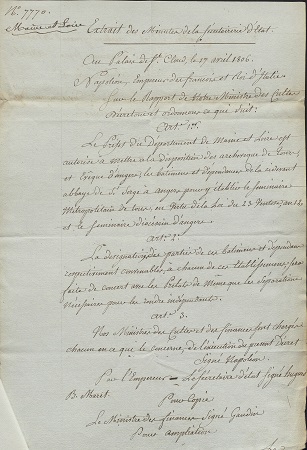 N.º 7770.
Maine et Loire
Extrait des Minutes de la Secretairerie d'Etat.
Au Palais de St. Cloud, le 17 avril 1806.
Napoléon, Empereur des francois et Roi d'Italie
Sur le Rapport de Notre Ministre des Cultes
Decretons et ordonnons ce qui Suit:
Art. 1er.
Le Préfet du Département de Maine et Loire, est
autorisé à mettre à la disposition des archevêque de Tours,
et Evêque d'angers, les batimens et dependances de la cidevant
abbaye de St. Serge à angers pour y etablir le Seminaire
Métropolitain de Tours, en vertu de la Loi du 23 Ventose an 12,
et le Seminaire diocésain d'angers.
Art. 2.
La designation des parties de ces batimens et dependances
respectivement convenables, à chacun de ces Etablissemens, sera
faite de concert avec les Prélats de meme que les Séparations
nécessaires pour les rendre indépendantes.
Art. 3.
Nos Ministres des Cultes et des finances sont chargés
chacun en ce qui le concerne, de l'execution du present Decret
Signé Napoléon
Par l'Empereur Le Secrétaire d'état Signé hugues
B. Maret.
Pour Copie
Le Ministre des finances Signé Gaudin
Pour ampliation